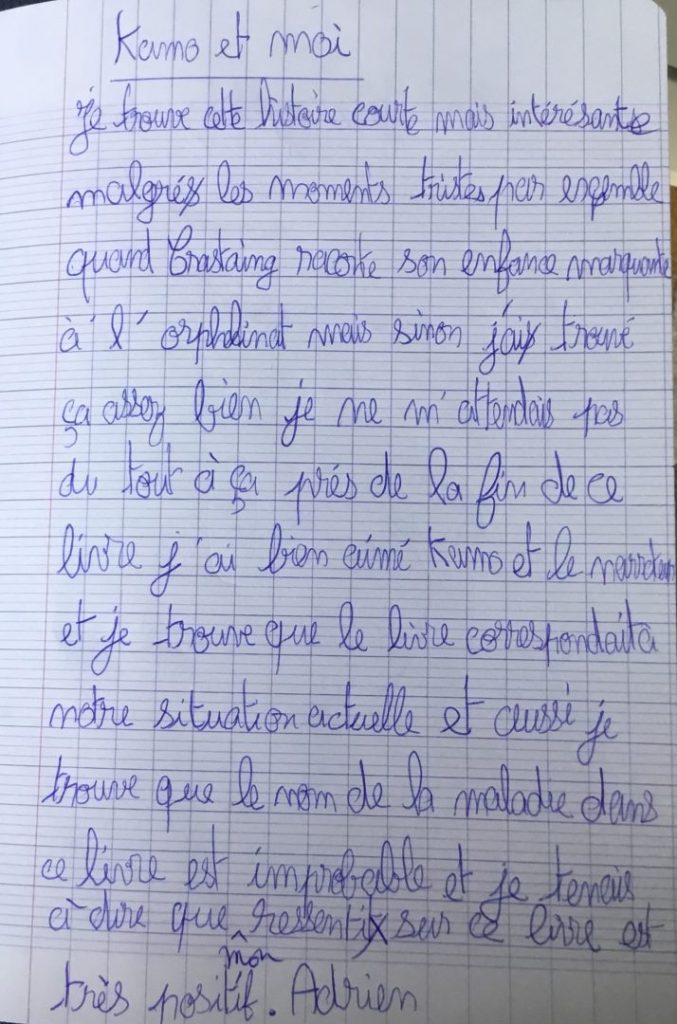 Kamo et moi
je trouve cette histoire courte mais intérésante
malgrés les moments tristes par exemple
quand Crastaing raconte son enfance marquante
à l'orphelinat mais sinon j'ai trouvé
ça assez bien je ne m'attendais pas
du tout à ça près de la fin de ce
livre j'ai bien aimé Kamo et le narrateur
et je trouve que le livre correspondait a
notre situation actuelle et aussi je
trouve que le nom de la maladie dans
ce livre est improbable et je tenais
à dire que mon ressenti sur ce livre est
très positif. Adrien